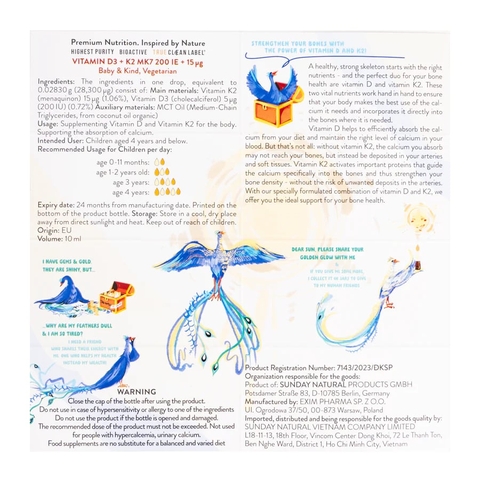 Premium Nutrition. Inspired by Nature
HIGHEST PURITY BIOACTIVE TRUE CLEAN LABEL
VITAMIN D3 + K2 MK7 200 IE + 15 µg
Baby & Kind, Vegetarian
Ingredients: The ingredients in one drop, equivalent to
0.02830 g (28,300 µg) consist of: Main materials: Vitamin K2
(menaquinon) 15 µg (1.06%), Vitamin D3 (cholecalciferol) 5 µg
(200 IU) (0.72%) Auxiliary materials: MCT Oil (Medium-Chain
Triglycerides, from coconut oil organic)
Usage: Supplementing Vitamin D and Vitamin K2 for the body.
Supporting the absorption of calcium.
Intended User: Children aged 4 years and below.
Recommended Usage for Children per day:
age 0-11 months:
age 1-2 years old:
age 3 years:
age 4 years:
Expiry date: 24 months from manufacturing date. Printed on
the bottom of the product bottle. Storage: Store in a cool, dry place
away from direct sunlight and heat. Keep out of reach of children.
Origin: EU
Volume: 10 ml
STRENGTHEN YOUR BONES WITH
THE POWER OF VITAMIN D AND K2!
A healthy, strong skeleton starts with the right
nutrients - and the perfect duo for your bone
health are vitamin D and vitamin K2. These
two vital nutrients work hand in hand to ensure
that your body makes the best use of the cal-
cium it needs and incorporates it directly into
the bones where it is needed.
Vitamin D helps to efficiently absorb the cal-
cium from your diet and maintain the right level of calcium in your
blood. But that's not all: without vitamin K2, the calcium you absorb
may not reach your bones, but instead be deposited in your arteries
and soft tissues. Vitamin K2 activates important proteins that guide
the calcium specifically into the bones and thus strengthen your
bone density - without the risk of unwanted deposits in the arteries.
With our specially formulated combination of vitamin D and K2, we
offer you the ideal support for your bone health.
I HAVE GEMS & GOLD
THEY ARE SHINY, BUT...
...WHY ARE MY FEATHERS DULL
& I AM SO TIRED?
I NEED A FRIEND
DEAR SUN, PLEASE SHARE YOUR
GOLDEN GLOW WITH ME
WARNING
Close the cap of the bottle after using the product.
Do not use in case of hypersensitivity or allergy to one of the ingredients
Do not use the product if the bottle is opened and damaged.
The recommended dose of the product must not be exceeded. Not used
for people with hypercalcemia, urinary calcium.
Food supplements are no substitute for a balanced and varied diet
Product Registration Number: 7143/2023/ĐKSP
Organization responsible for the goods:
Product of: SUNDAY NATURAL PRODUCTS GMBH
Potsdamer Straße 83, D-10785 Berlin, Germany
Manufactured by: EXIM PHARMA SP. Z O.O.
Ul. Ogrodowa 37/50, 00-873 Warsaw, Poland
Imported, distributed and being responsible for the goods quality by:
SUNDAY NATURAL VIETNAM COMPANY LIMITED
L18-11-13, 18th Floor, Vincom Center Dong Khoi, 72 Le Thanh Ton,
Ben Nghe Ward, District 1, Ho Chi Minh City, Vietnam